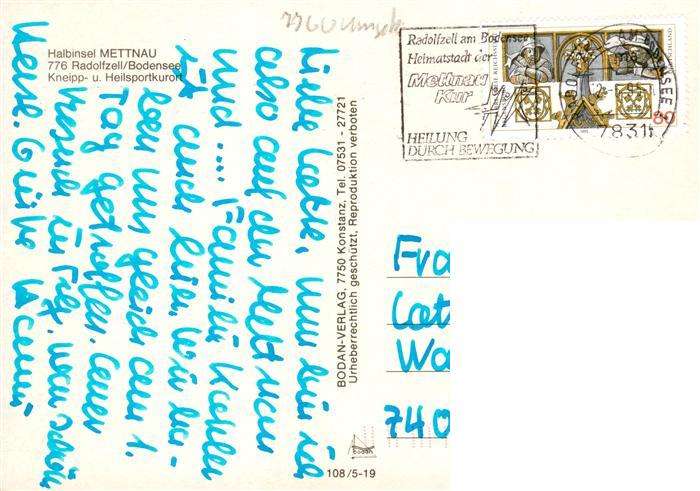 Halbinsel METTNAU
776 Radolfzell/Bodensee
Kneipp- u. Heilsportkurort
Radolfzell am Bodensee
Heimatstadt der
Mettnau
Kur
HEILUNG
DURCH BEWEGUNG
7831
80
Liebe Lotte, nun bin ich
also auf der Mettnau
und.... Familie
ist auch hier. Wir ha-
ben uns gleich am 1.
Tag getroffen.
Besuch in war schön
Herzl. Grüße
BODAN-VERLAG, 7750 Konstanz, Tel. 07531 - 27721
Urheberrechtlich geschützt, Reproduktion verboten
bodan
108/5-19
Fra
Lot
Wa
740